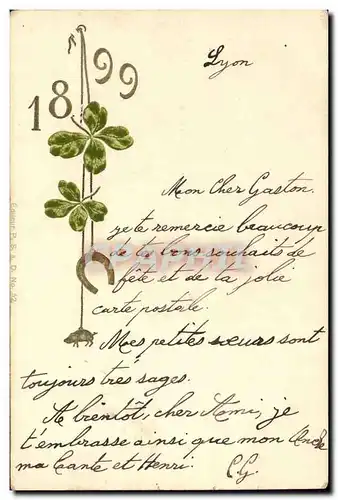 1899
Lyon
Mon Cher Gaston.
je te remercie beaucoup
de tes bons souhaits de
fête et de ta jolie
carte postale.
Mes petites soeurs sont
toujours très sages.
A bientôt, cher Ami, je
t'embrasse ainsi que mon Oncle
ma tante et Henri. C.G.